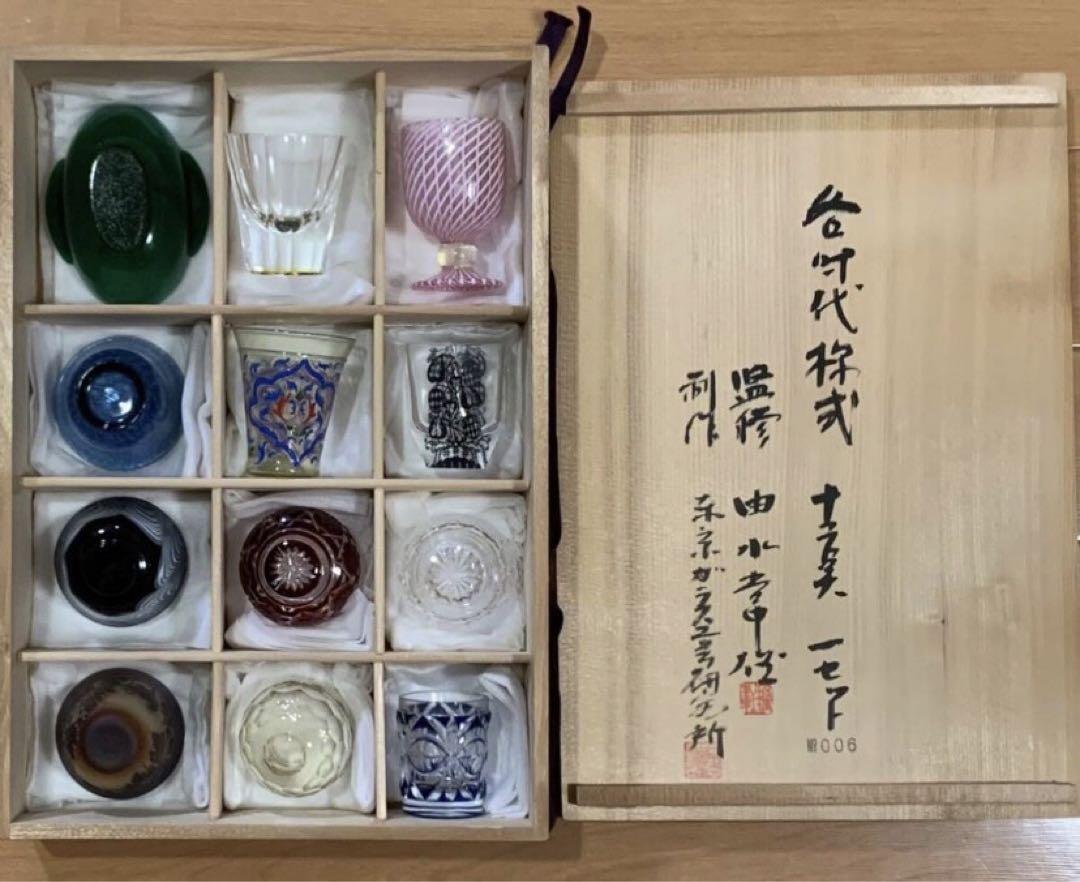 各時代様式 十二点 一セット
№006
監修 由水常雄
制作 東京ガラス工芸研究所